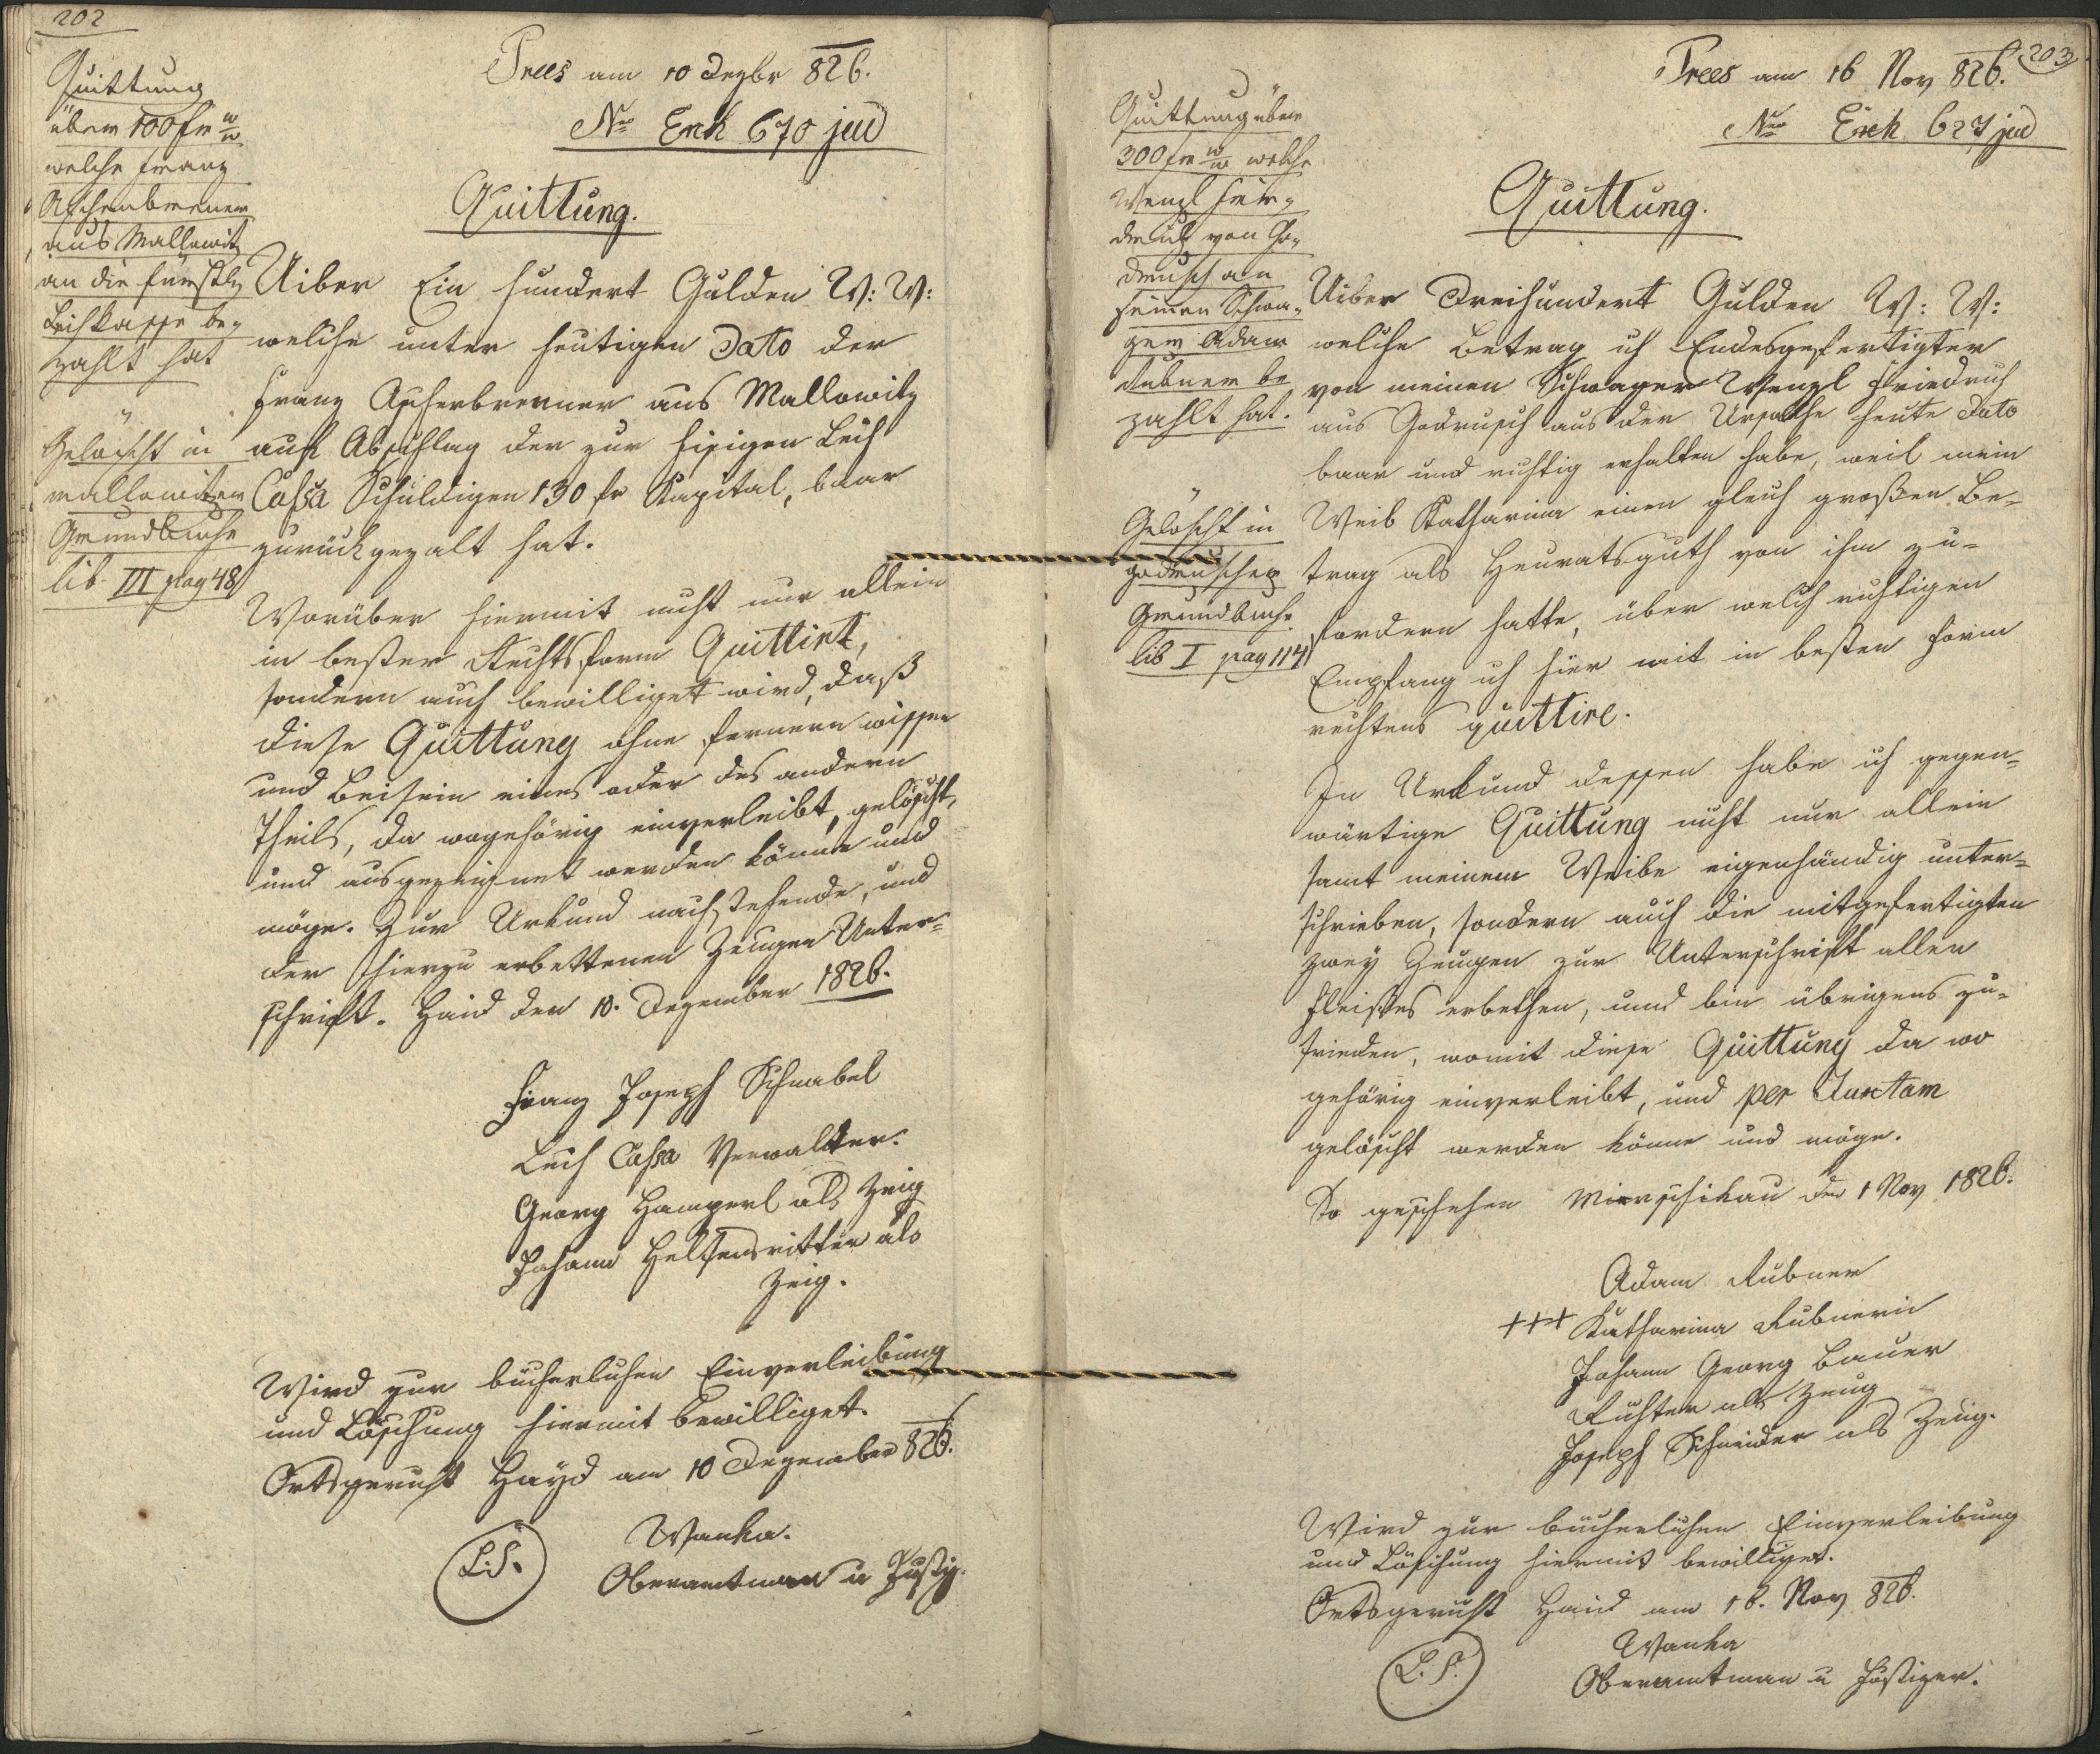 202
Quittung
über 100 fr W W
welche Franz
Ascherbrenner
aus Mallowitz
an die fürstly
Leihkasse be-
zahlt hat
Gelöscht in
mallowitzer
Grundbuche
lib III pag 48
Prees am 10 Dezbr 826.
Nro Exh 670 jud
Quittung.
Uiber Ein hundert Gulden W: W:
welche unter heutigen Dato der
Franz Ascherbrenner aus Mallowitz
auf Abschlag der zur hisigen Leih
Cassa Schuldigen 130 fr Kapital, baar
zurückgezalt hat.
Worüber hiermit nicht nur allein
in bester Rechtsform Quittirt,
sondern auch bewilliget wird, daß
diese Quittung ohne fernern wissen
und Beisein eines oder des andern
Theils, da wogehörig einverleibt, gelöscht,
und ausgezeignet werden könne und
möge. Zur Urkund nachstehende, und
der hierzu erbettenen Zeugen Unter-
schrift. Haid den 10. Dezember 1826.
Franz Joseph Schnabel
Leih Cassa Verwalter.
Georg Hamperl als Zeig
Johann Helfensritter als
Zeig.
Wird zur bücherlichen Einverleibung
und Löschung hiermit bewilliget.
Ortsgericht Hayd am 10 Dezember 826.
L.S.
Wanka.
Oberamtman u Justiz.
203
Prees am 16 Nov 826.
Nro Exh 627 jud
Quittung über
300 fr W W welche
Wenzl Frie-
drich von Go-
drusch an
seinen Schwa-
ger Adam
Rubner be
zahlt hat.
Gelöscht in
godruscher
Grundbuche
lib I pag 114
Quittung.
Uiber Dreihundert Gulden W: W:
welche Betrag ich Endesgefertigter
von meinen Schwager Wenzl Friedrich
aus Godrusch aus der Ursache heute Dato
baar und richtig erhalten habe, weil mein
Weib Katharina einen gleich großen Be-
trag als Heuratsguth von ihm zu-
fordern hatte, über welch richtigen
Empfang ich hier mit in besten Form
rechtens quittire.
In Urkund dessen habe ich gegen-
wärtige Quittung nicht nur allein
samt meinem Weibe eigenhändig unter-
schrieben, sondern auch die mitgefertigten
zwey Zeugen zur Unterschrift allen
Fleißes erbethen, und bin übrigens zu-
frieden, womit diese Quittung da wo
gehörig einverleibt, und per Juxtam
gelöscht werden könne und möge.
So geschehen Mirschikau den 1 Nov 1826.
Adam Rubner
+++ Katharina Rubnerin
Johann Georg Bauer
Richter als Zeug
Joseph Schneider als Zeug.
Wird zur bücherlichen Einverleibung
und Löschung hiermit bewilliget.
Ortsgericht Haid am 16. Nov 826.
L.S.
Wanka
Oberamtman u Justizer.